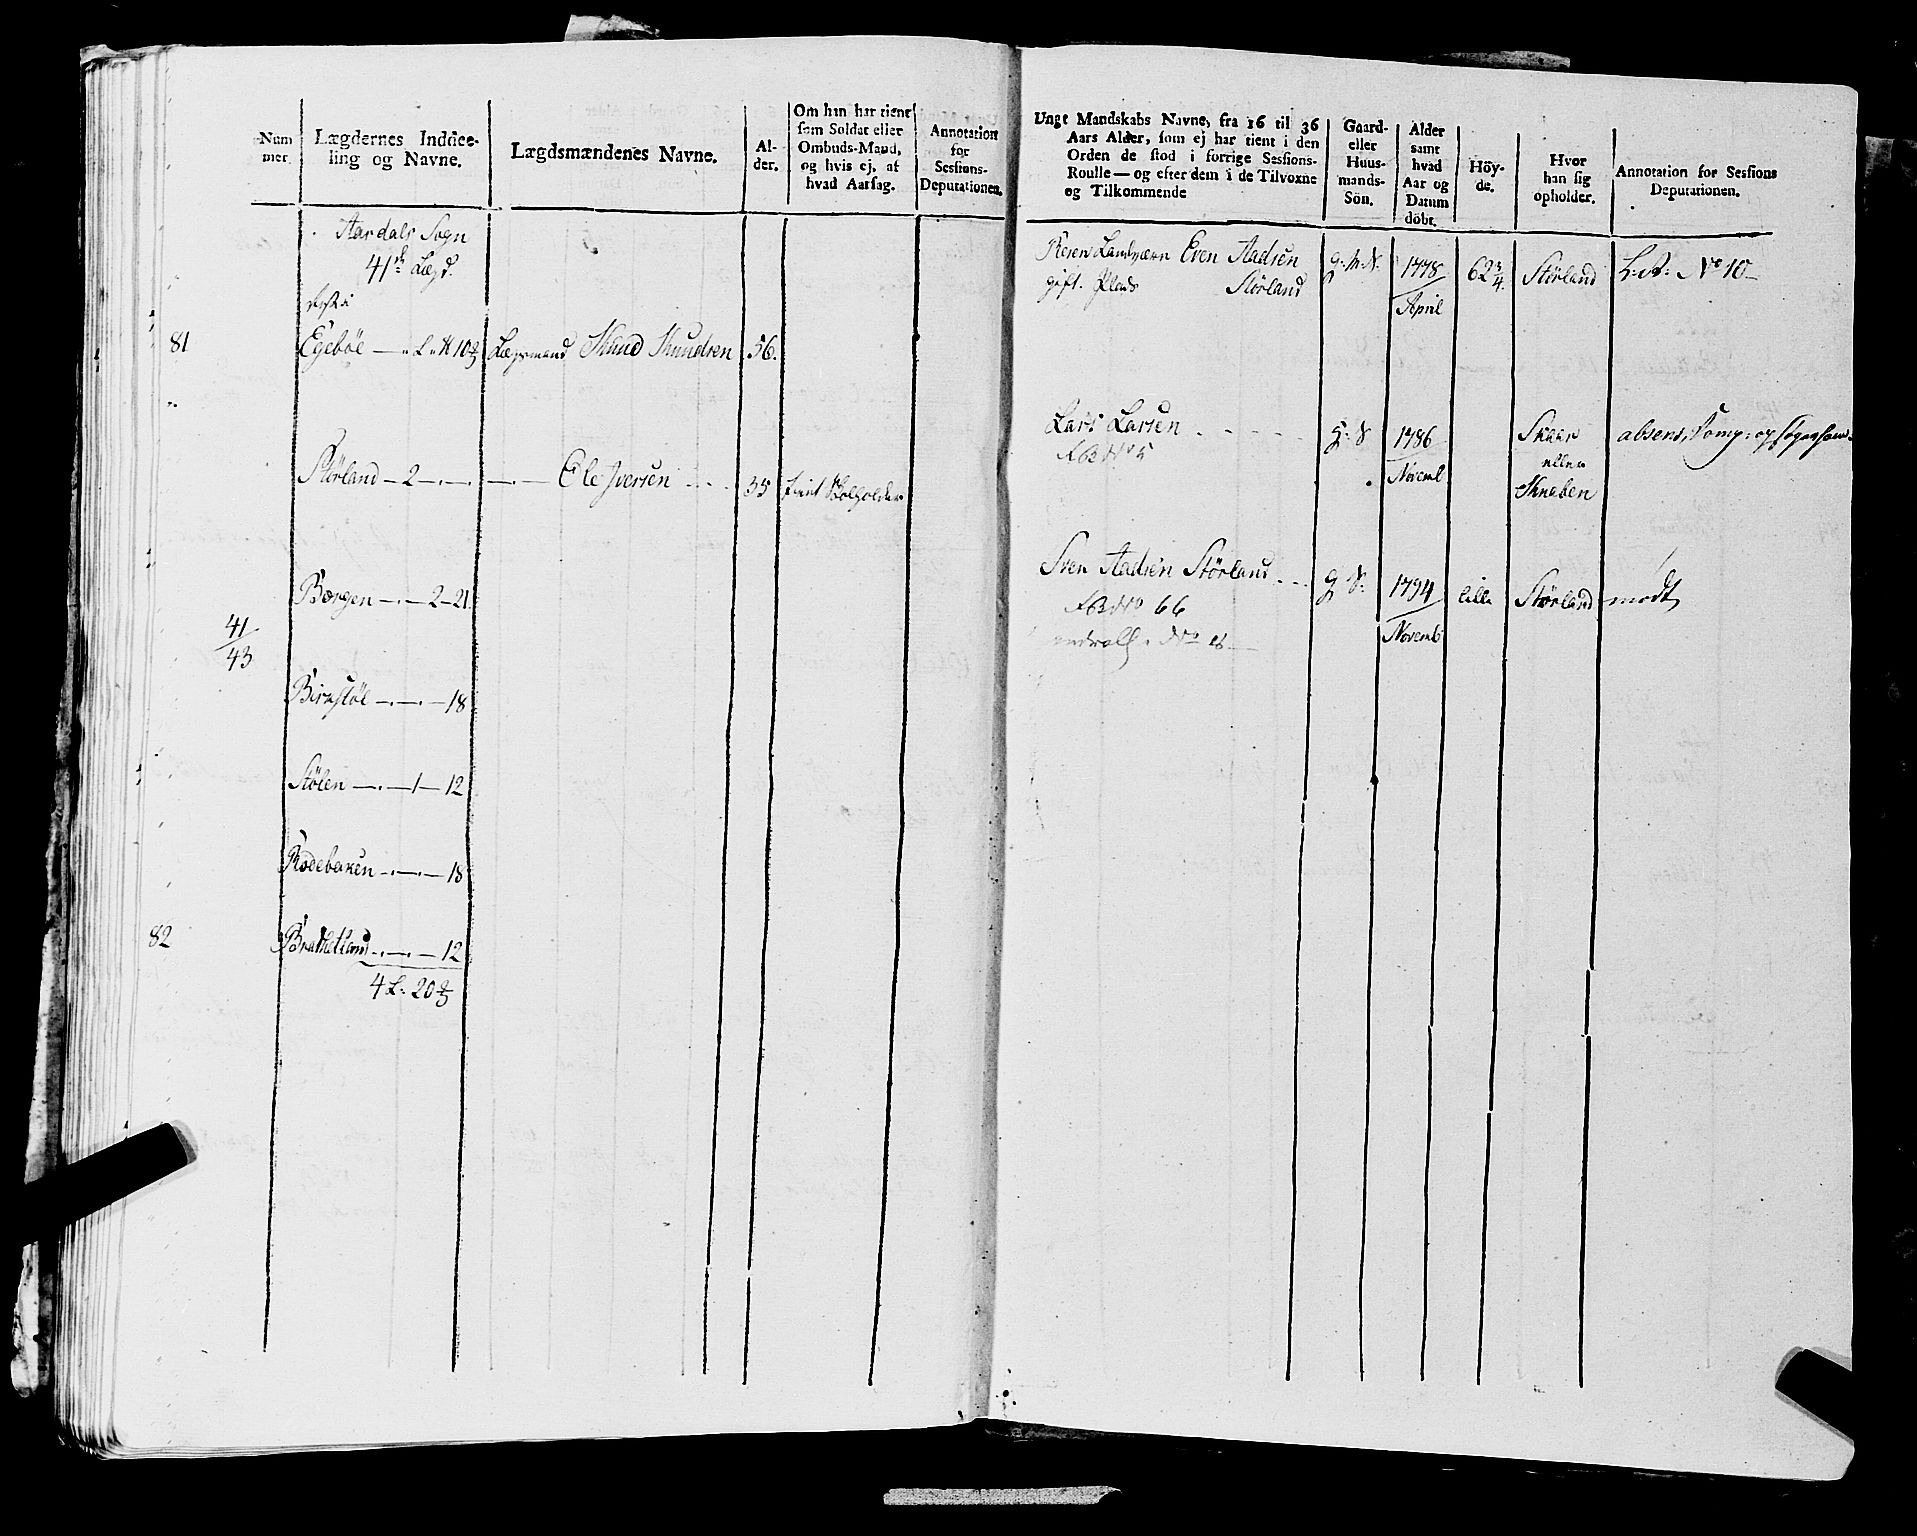 Num
mer.
Lægdernes Inddee-
ling og Navne.
Lægdsmændenes Navne.
Al-
der.
Om han har tient
som Soldat eller
Ombuds-Mand,
og hvis ej, af
hvad Aarsag.
Annotation
for
Sessions-
Deputationen.
Aardals Sogn
41de Lægd.
81
Egebøe
10
Lægsmand Knud Knudsen 56.
Størland - 2 - Ole Iversen 35 tient
Borgen 2-21
41
43
Birkstøl 18
Stølen 1-12
Rodebakken 18
82
Brathetland 12
4 L: 20
Ungt Mandskabs Navne, fra 16 til 36
Aars Alder, som ej har tient i den
Orden de stod i forrige Sessions-
Roulle — og efter dem i de Tilvoxne
og Tilkommende
Gaard-
eller
Huus-
mands-
Sön.
Alder
samt
hvad
Aar og
Datum
döbt.
Höy-
de.
Hvor
han sig
opholder.
Annotation for Sessions
Deputationen.
Landværn Even Aadsen 1778 62 3/4 Størland No 10
gift. Plads Størland April
Lars Larsen G. S 1786 Skaar absent,
No 5 Novemb eller
Knaben
Sven Aadsen Størland G S. 1794 lille Størland mødt
No 66 Novemb
No